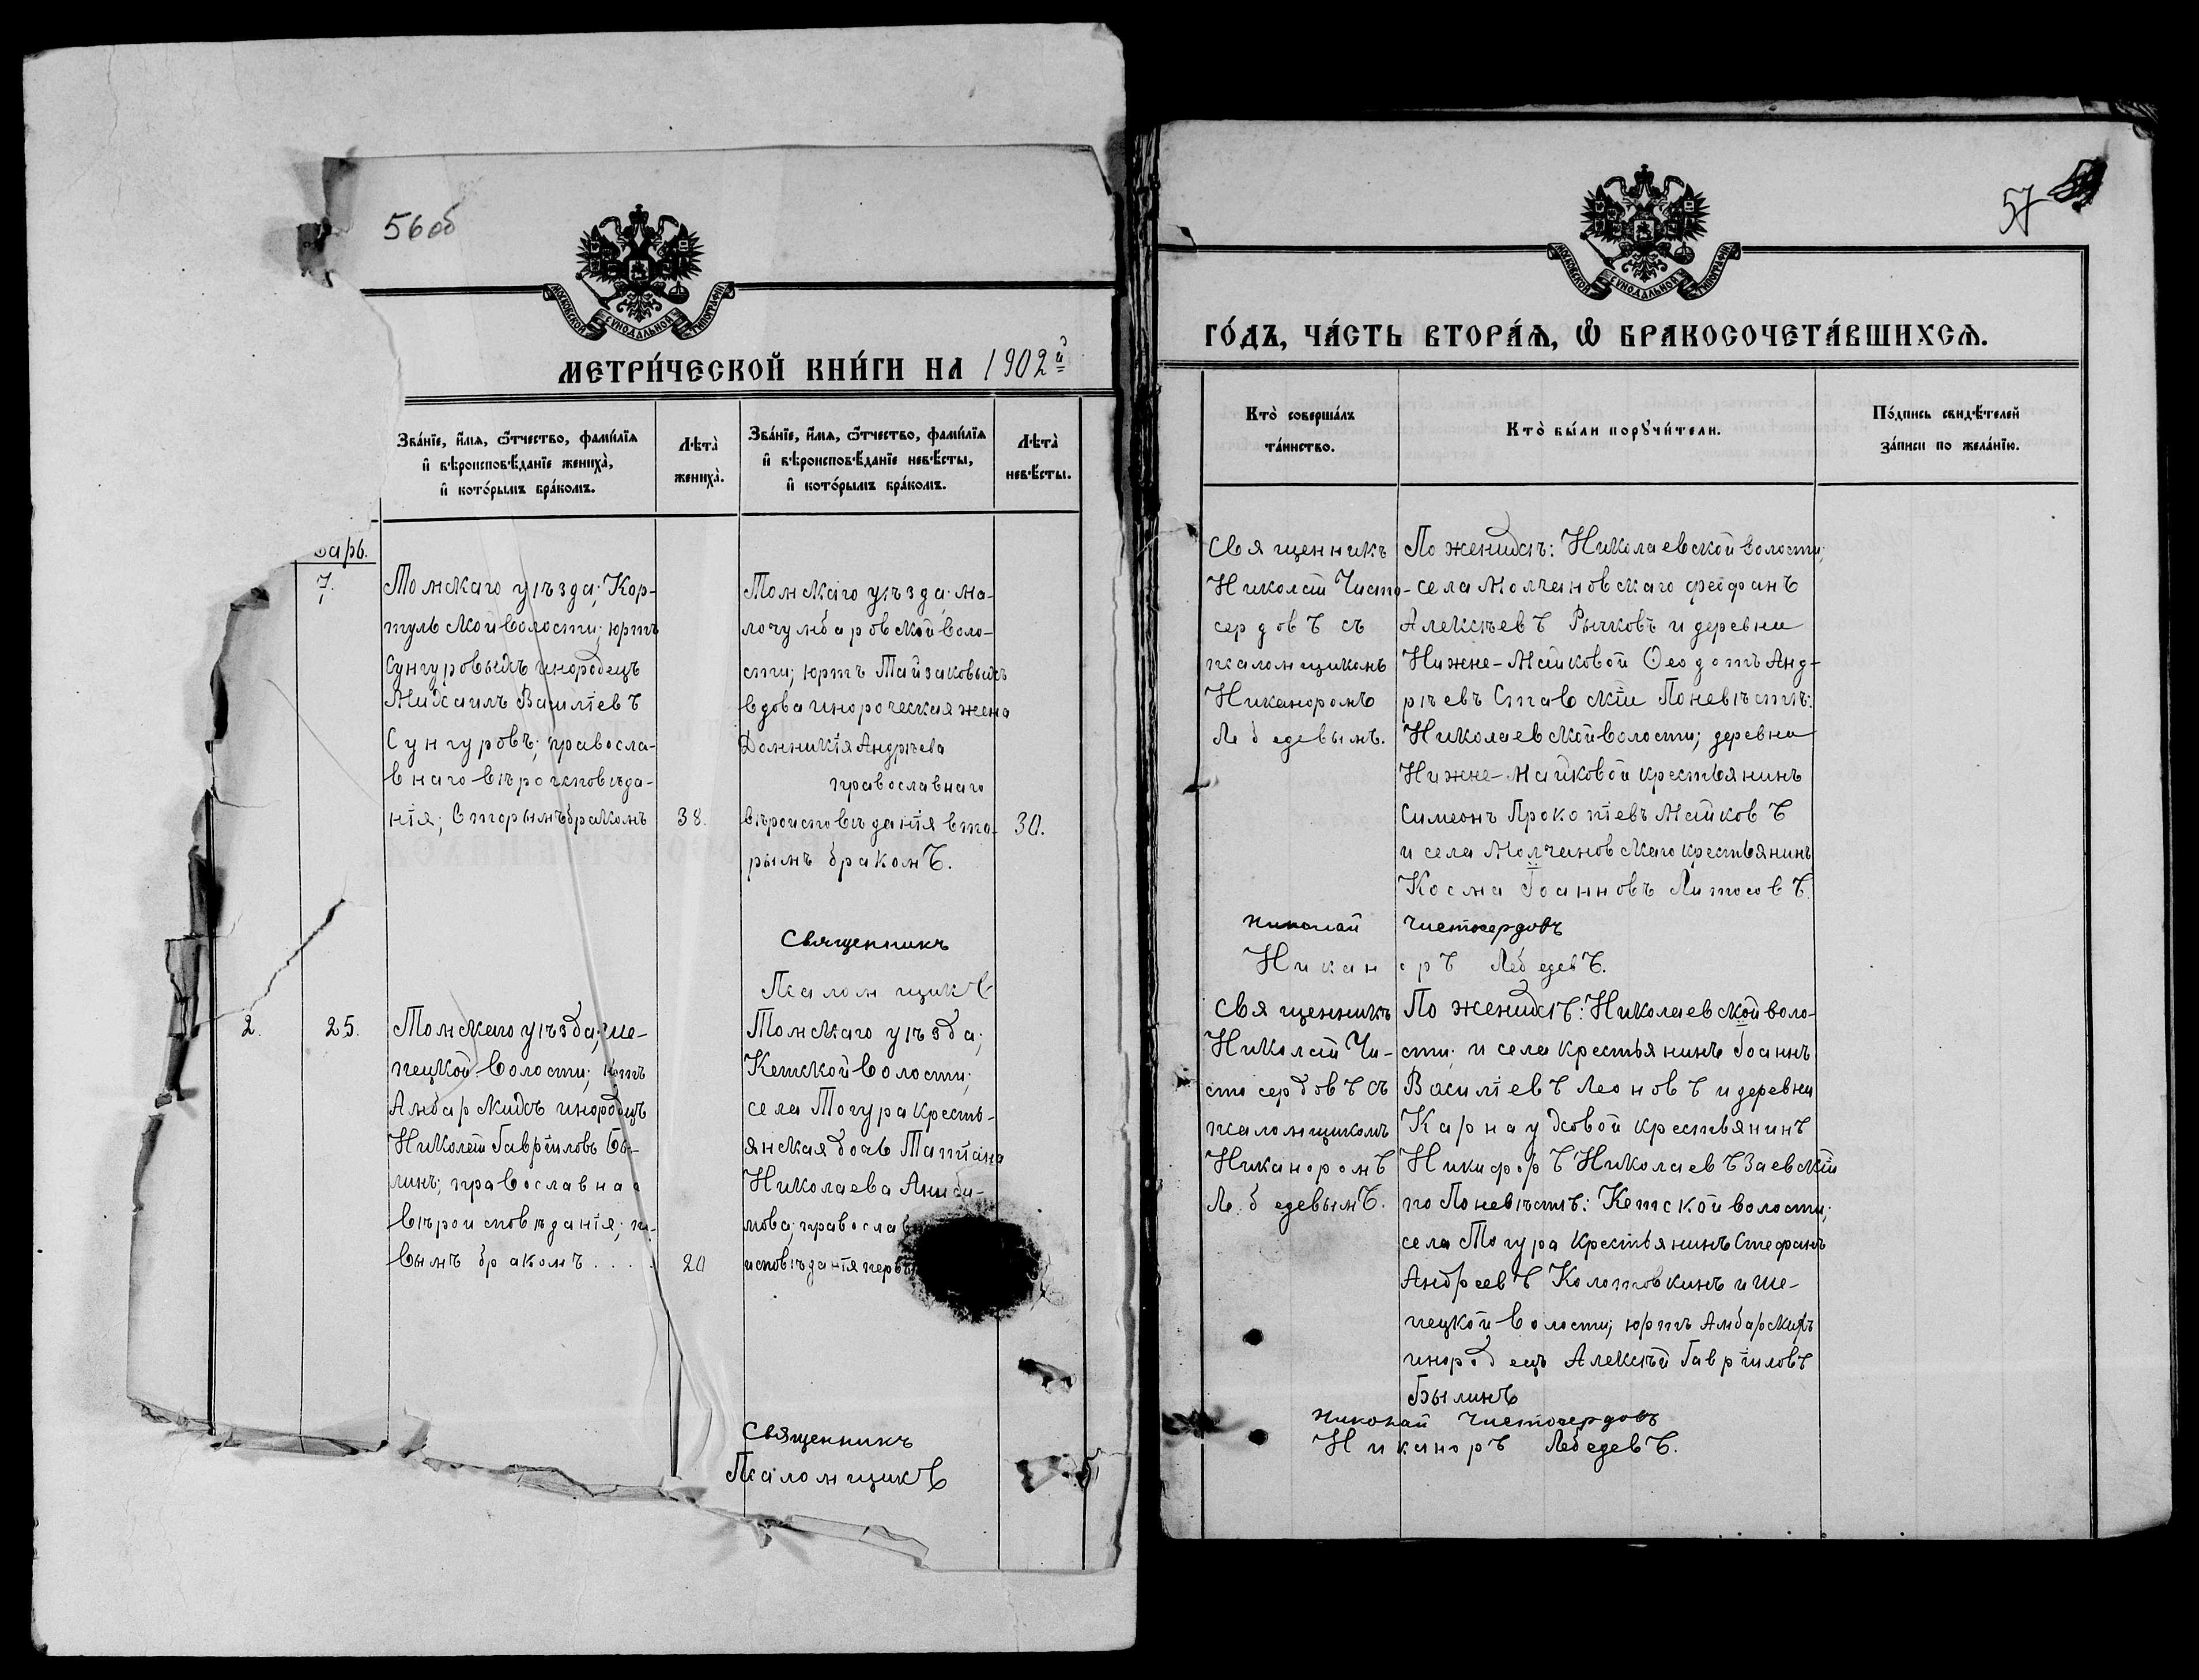 56об
МОСКОВСКОЙ СѴНОДАЛЬНОЙ ТИПОГРАФІИ
МЕТРИ́ЧЕСКОЙ КНИ́ГИ НА 1902й
Зва́нїе, и́мѧ, ѻ҆́тчество, фами́лїѧ
и҆ вѣроисповѣ́данїе жениха̀,
и҆ кото́рымъ бра́комъ.
Лѣта̀
жениха̀.
Зва́нїе, и́мѧ, ѻ҆́тчество, фами́лїѧ
и҆ вѣроисповѣ́данїе невѣ́сты,
и҆ кото́рымъ бра́комъ.
Лѣта̀
невѣ́сты.
варь.
7.
Томскаго уѣзда; Кор-
тульской волости; юртъ
Сунгуровыхъ инородецъ
Михаилъ Василіевъ
Сунгуровъ; правосла-
внаго вѣроисповѣда-
нія; вторымъ бракомъ
38.
Томскаго уѣзда; ма-
лочумбаровской воло-
сти; юртъ Тайзаковыхъ
вдова инороческая жена
Домникія Андрѣева
православнаго
вѣроисповѣданія вто-
рымъ бракомъ.
30.
Священникъ
Псаломщикъ
2.
25.
Томскаго уѣзда; ше-
пецкой волости; юртъ
Амбарскихъ инородецъ
Николай Гавріиловъ Бы-
линъ; православнаг
вѣроисповѣданія; пе-
вымъ бракомъ . . . .
20
Томскаго уѣзда;
Кетской волости;
села Тогура кресть-
янская дочь Татіана
Николаева Аниси-
мова; православ
исповѣданія первы
Священникъ
Псаломщикъ
57
МОСКОВСКОЙ СѴНОДАЛЬНОЙ ТИПОГРАФІИ
ГО́ДЪ, ЧА́СТЬ ВТОРА́Ѧ, Ѽ БРАКОСОЧЕТА́ВШИХСѦ.
Кто̀ соверша́лъ
та́инство.
Кто̀ бы́ли порꙋчи́тели.
По́дпись свидѣ́телей
за́писи по жела́нїю.
Священникъ
Николай Чисто-
сердовъ съ
псаломщикомъ
Никаноромъ
Лебедевымъ.
По женихѣ: Николаевской волости;
села Молчановскаго Феофанъ
Алексѣевъ Рычковъ и деревни
Нижне-Майковой Ѳеодотъ Анд-
рѣевъ Ставскій По невѣстѣ:
Николаевской волости; деревни
Нижне-Майковой крестьянинъ
Симеонъ Прокопіевъ Майковъ
и села Молчановскаго крестьянинъ
Косма Іоанновъ Литосовъ.
Николай Чистосердовъ
Никаноръ Лебедевъ.
Священникъ
Николай Чи-
стосердовъ съ
псаломщикомъ
Никаноромъ
Лебедевымъ.
По женихѣ: Николаевской воло-
сти; и села крестьянинъ Іоаннъ
Василіевъ Леоновъ и деревни
Карнауховой крестьянинъ
Никифоръ Николаевъ Заевскій
по По невѣстѣ: Кетской волости;
села Тогура крестьянинъ Стефанъ
Андреевъ Колотовкинъ и ше-
пецкой волости; юртъ Амбарскихъ
инородецъ Алексѣй Гавріиловъ
Былинъ
Николай Чистосердовъ
Никаноръ Лебедевъ.